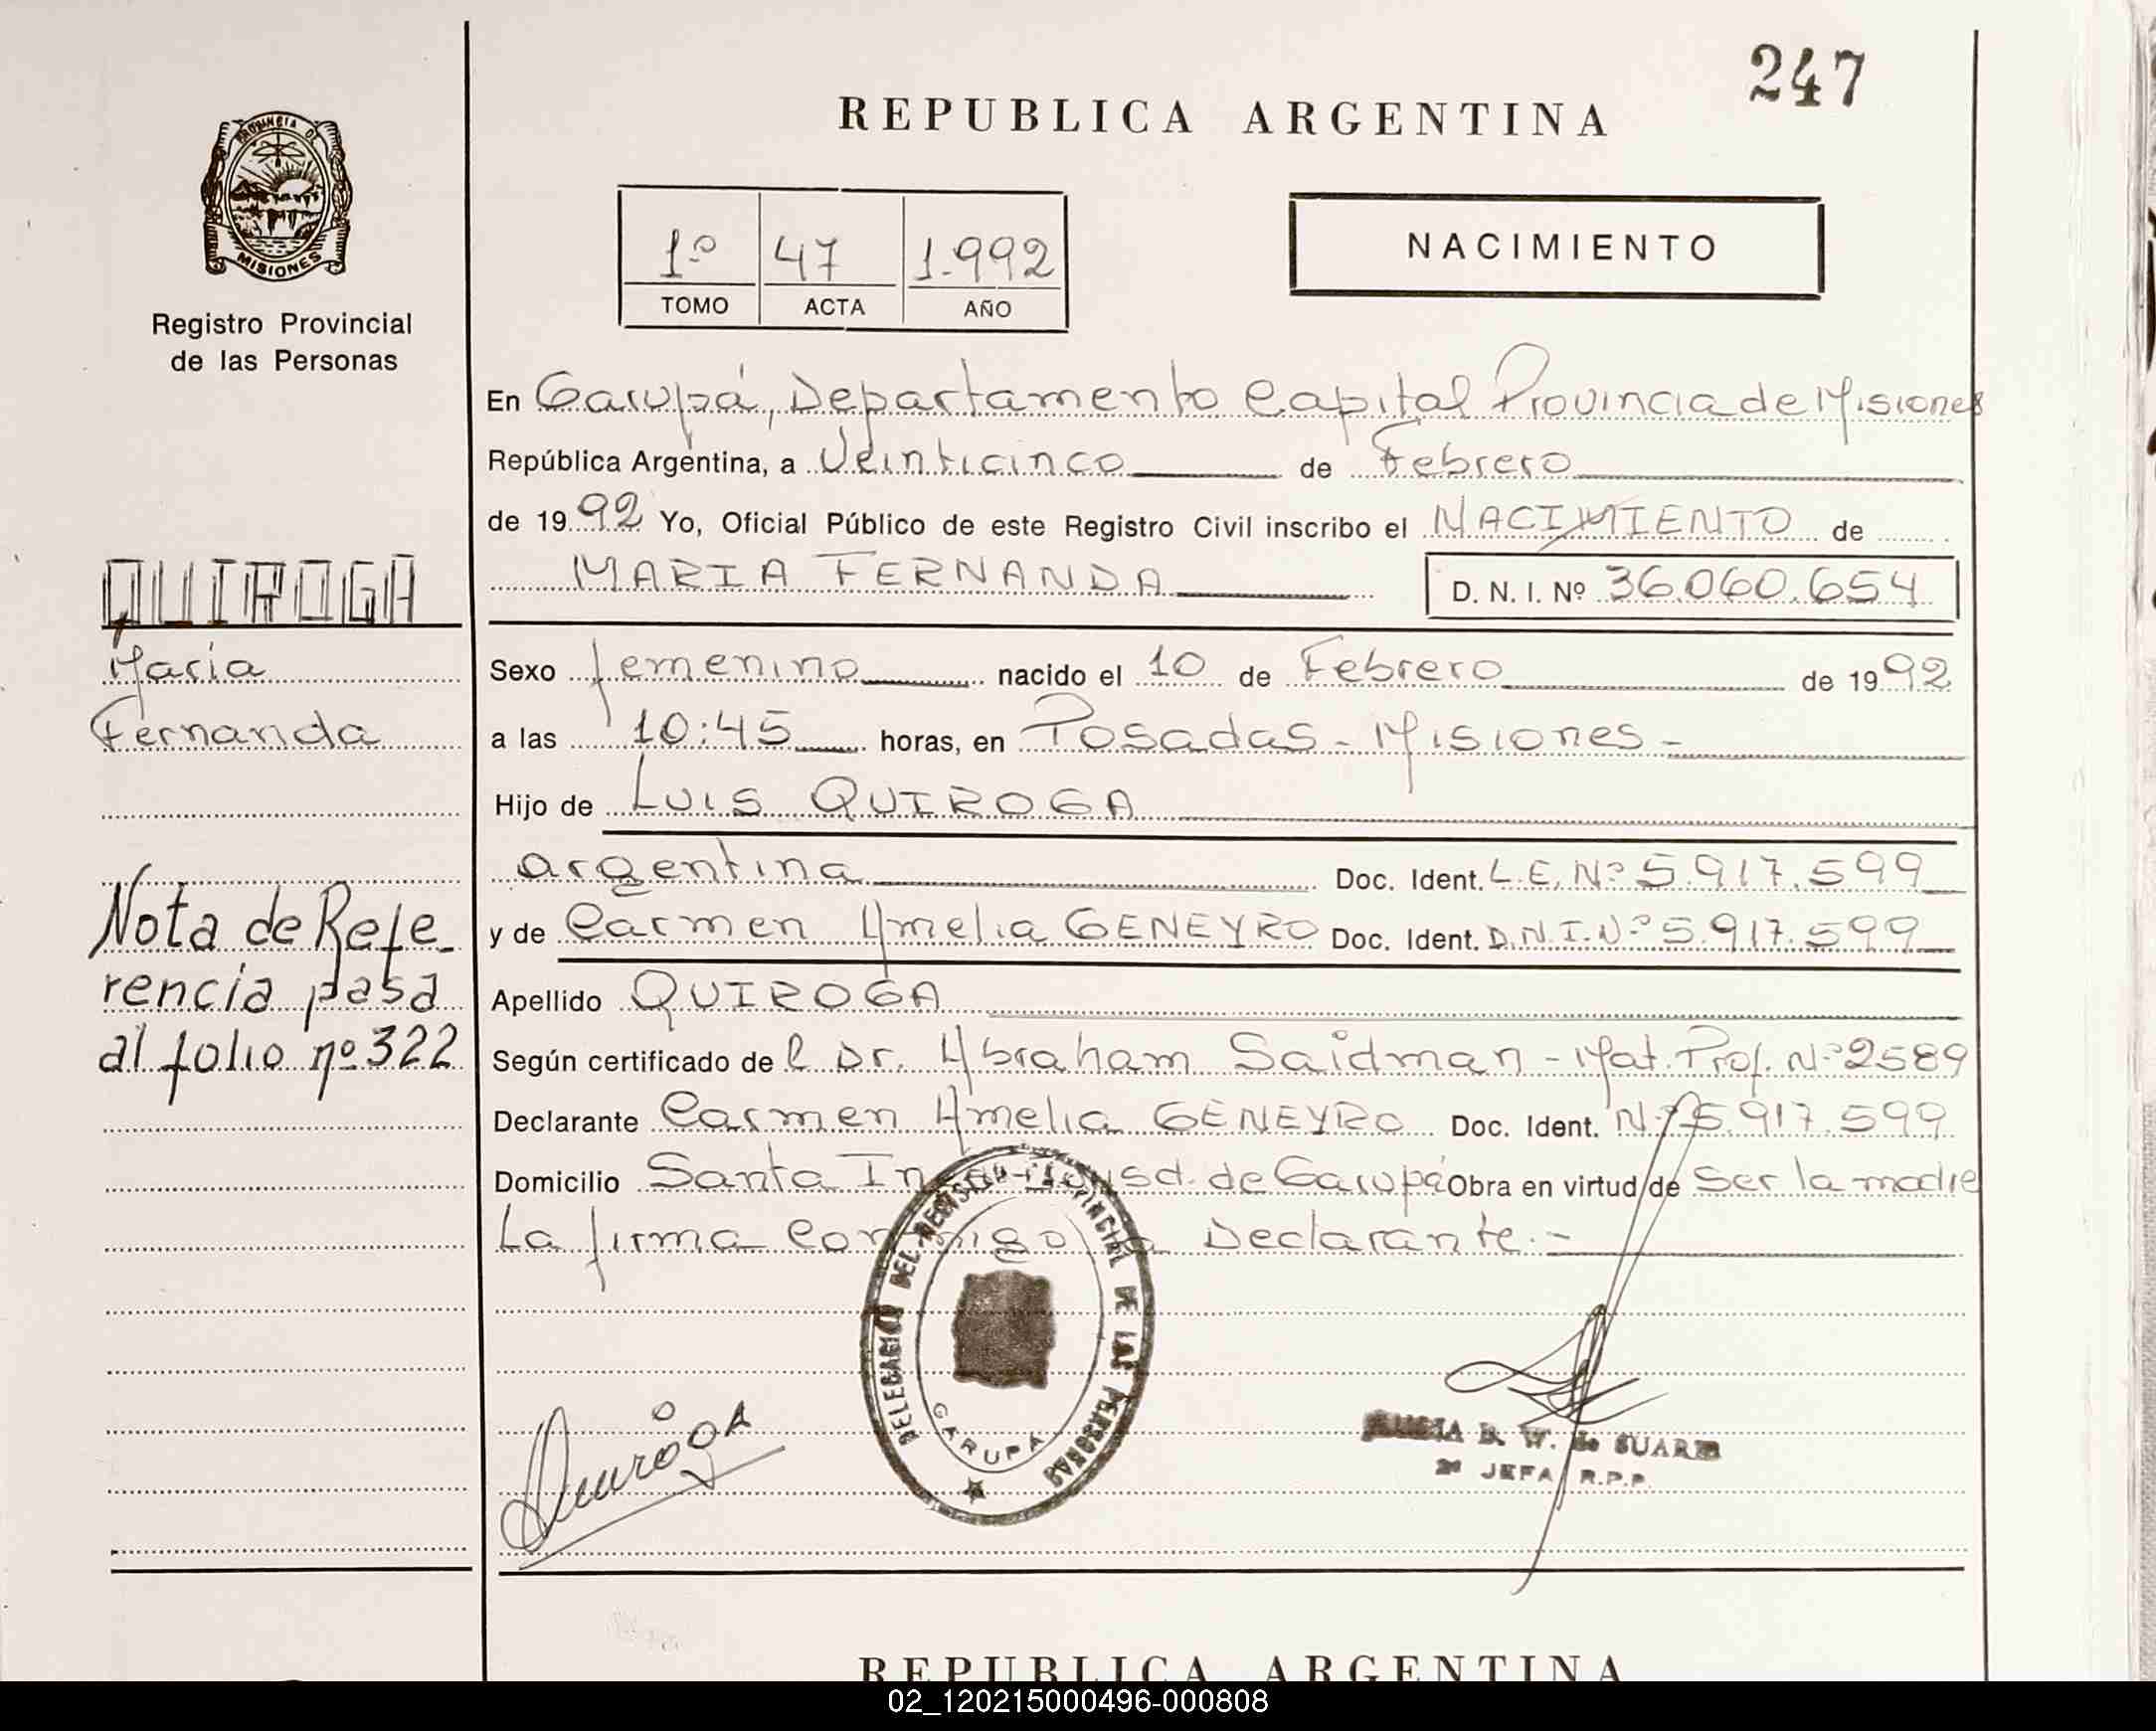 247
REPUBLICA ARGENTINA
PROVINCIA DE
MISIONES
Registro Provincial
de las Personas
1º 47 1.992
TOMO ACTA AÑO
NACIMIENTO
En Garupá, Departamento Capital Provincia de Misiones
República Argentina, a Veinticinco de Febrero
de 1992 Yo, Oficial Público de este Registro Civil inscribo el NACIMIENTO de
MARIA FERNANDA D. N. I. Nº 36.060.654
QUIROGA
Maria
Fernanda
Sexo femenino nacido el 10 de Febrero de 1992
a las 10:45 horas, en Posadas - Misiones -
Hijo de LUIS QUIROGA
argentina Doc. Ident. L.E. Nº 5.917.599
y de Carmen Amelia GENEYRO Doc. Ident. D.N.I. Nº 5.917.599
Nota de Refe-
rencia pasa
al folio nº 322
Apellido QUIROGA
Según certificado de l Dr. Abraham Saidman - Mat. Prof. Nº 2589
Declarante Carmen Amelia GENEYRO Doc. Ident. Nº 5.917.599
Domicilio Santa de Garupá Obra en virtud de Ser la madre
La firma conmigo la Declarante.-
DELEGACION DEL REGISTRO PROVINCIAL DE LAS PERSONAS
GARUPA
Quiroga
B. W. de SUAREZ
2ª JEFA R.P.P.
REPUBLICA ARGENTINA
02_120215000496-000808